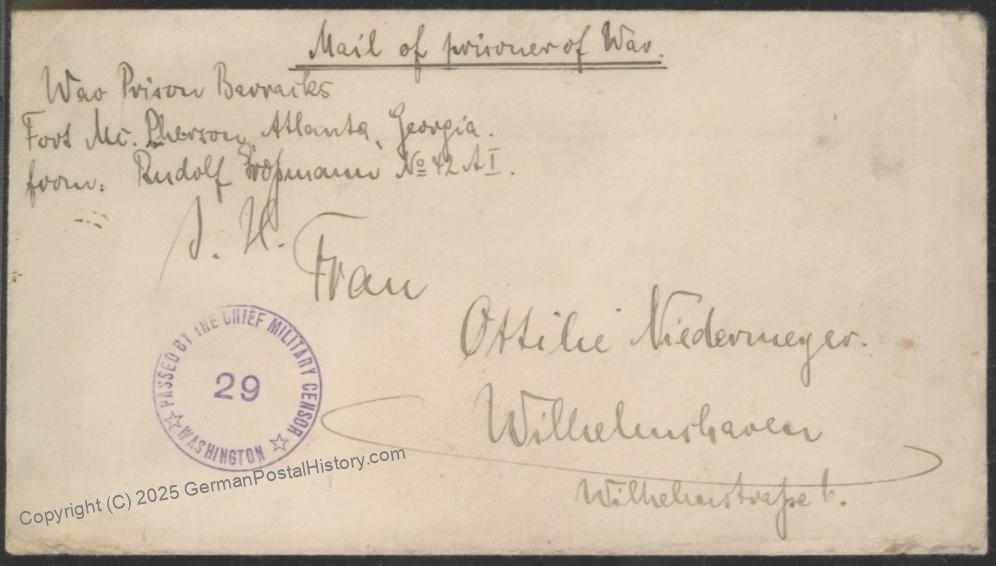 Mail of prisoner of War.
War Prison Barracks
Fort Mc. Pherson, Atlanta, Georgia.
from: Rudolf No 42 A I.
S. H.
Frau
Ottilie Niedermeyer.
Wilhelmshaven
Wilhelmstraße 6.
PASSED BY THE CHIEF MILITARY CENSOR
29
WASHINGTON
Copyright (C) 2025 GermanPostalHistory.com